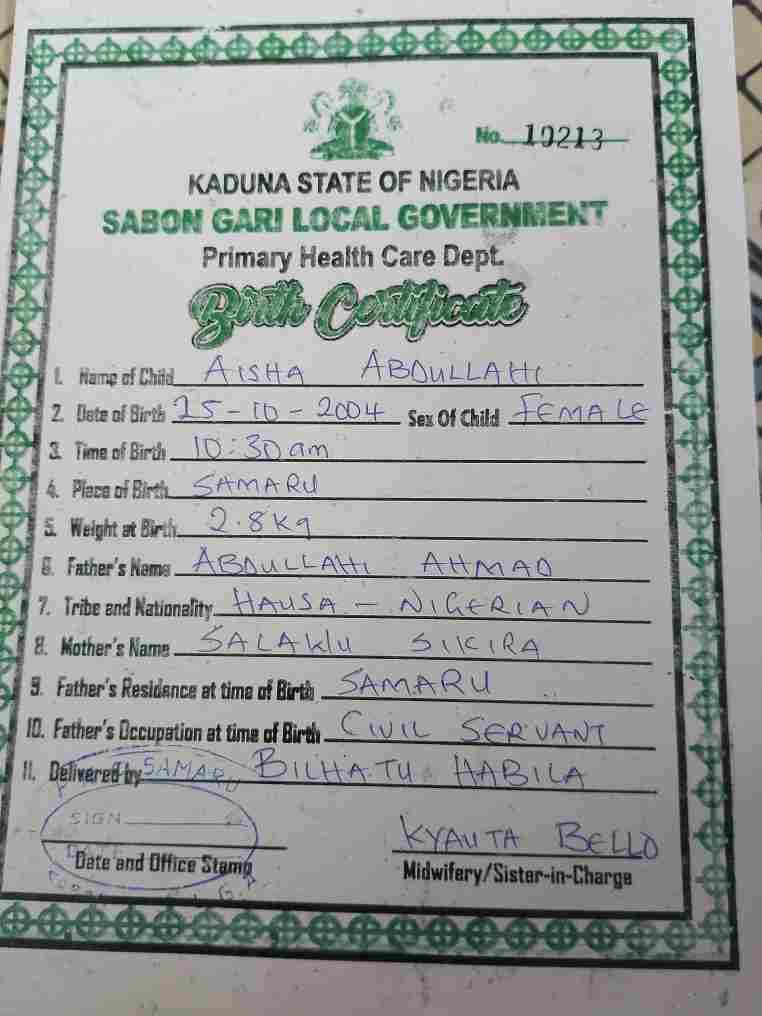 No. 10213
KADUNA STATE OF NIGERIA
SABON GARI LOCAL GOVERNMENT
Primary Health Care Dept.
Birth Certificate
1. Name of Child AISHA ABDULLAHI
2. Date of Birth 25-10-2004 Sex Of Child FEMALE
3. Time of Birth 10:30am
4. Place of Birth SAMARU
5. Weight at Birth 2.8kg
6. Father's Name ABDULLAHI AHMAD
7. Tribe and Nationality HAUSA - NIGERIAN
8. Mother's Name SALAKU SIKIRA
9. Father's Residence at time of Birth SAMARU
10. Father's Occupation at time of Birth CIVIL SERVANT
11. Delivered by BILHATU HABILA
SAMARU
SIGN
DATE
L.G.A
Date and Office Stamp
KYAUTA BELLO
Midwifery/Sister-in-Charge